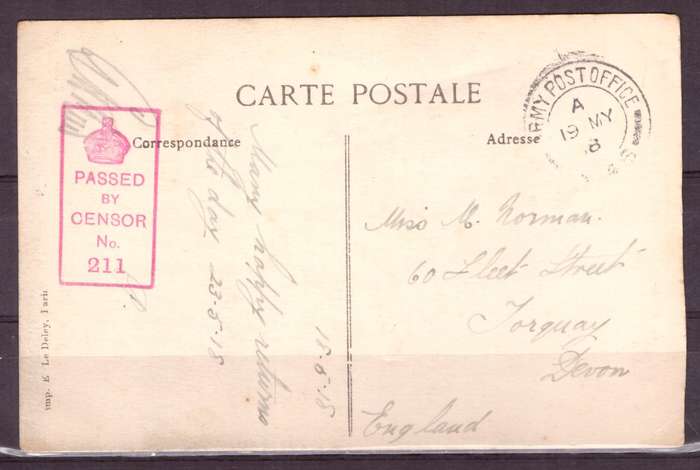 CARTE POSTALE
Correspondance
Adresse
ARMY POST OFFICE
A
19 MY
8
PASSED
BY
CENSOR
No.
211
18-5-18
Many happy returns
of the day 23-5-18
Miss M. Norman.
60 Fleet Street
Torquay
Devon
England
Imp. E. Le Deley, Paris